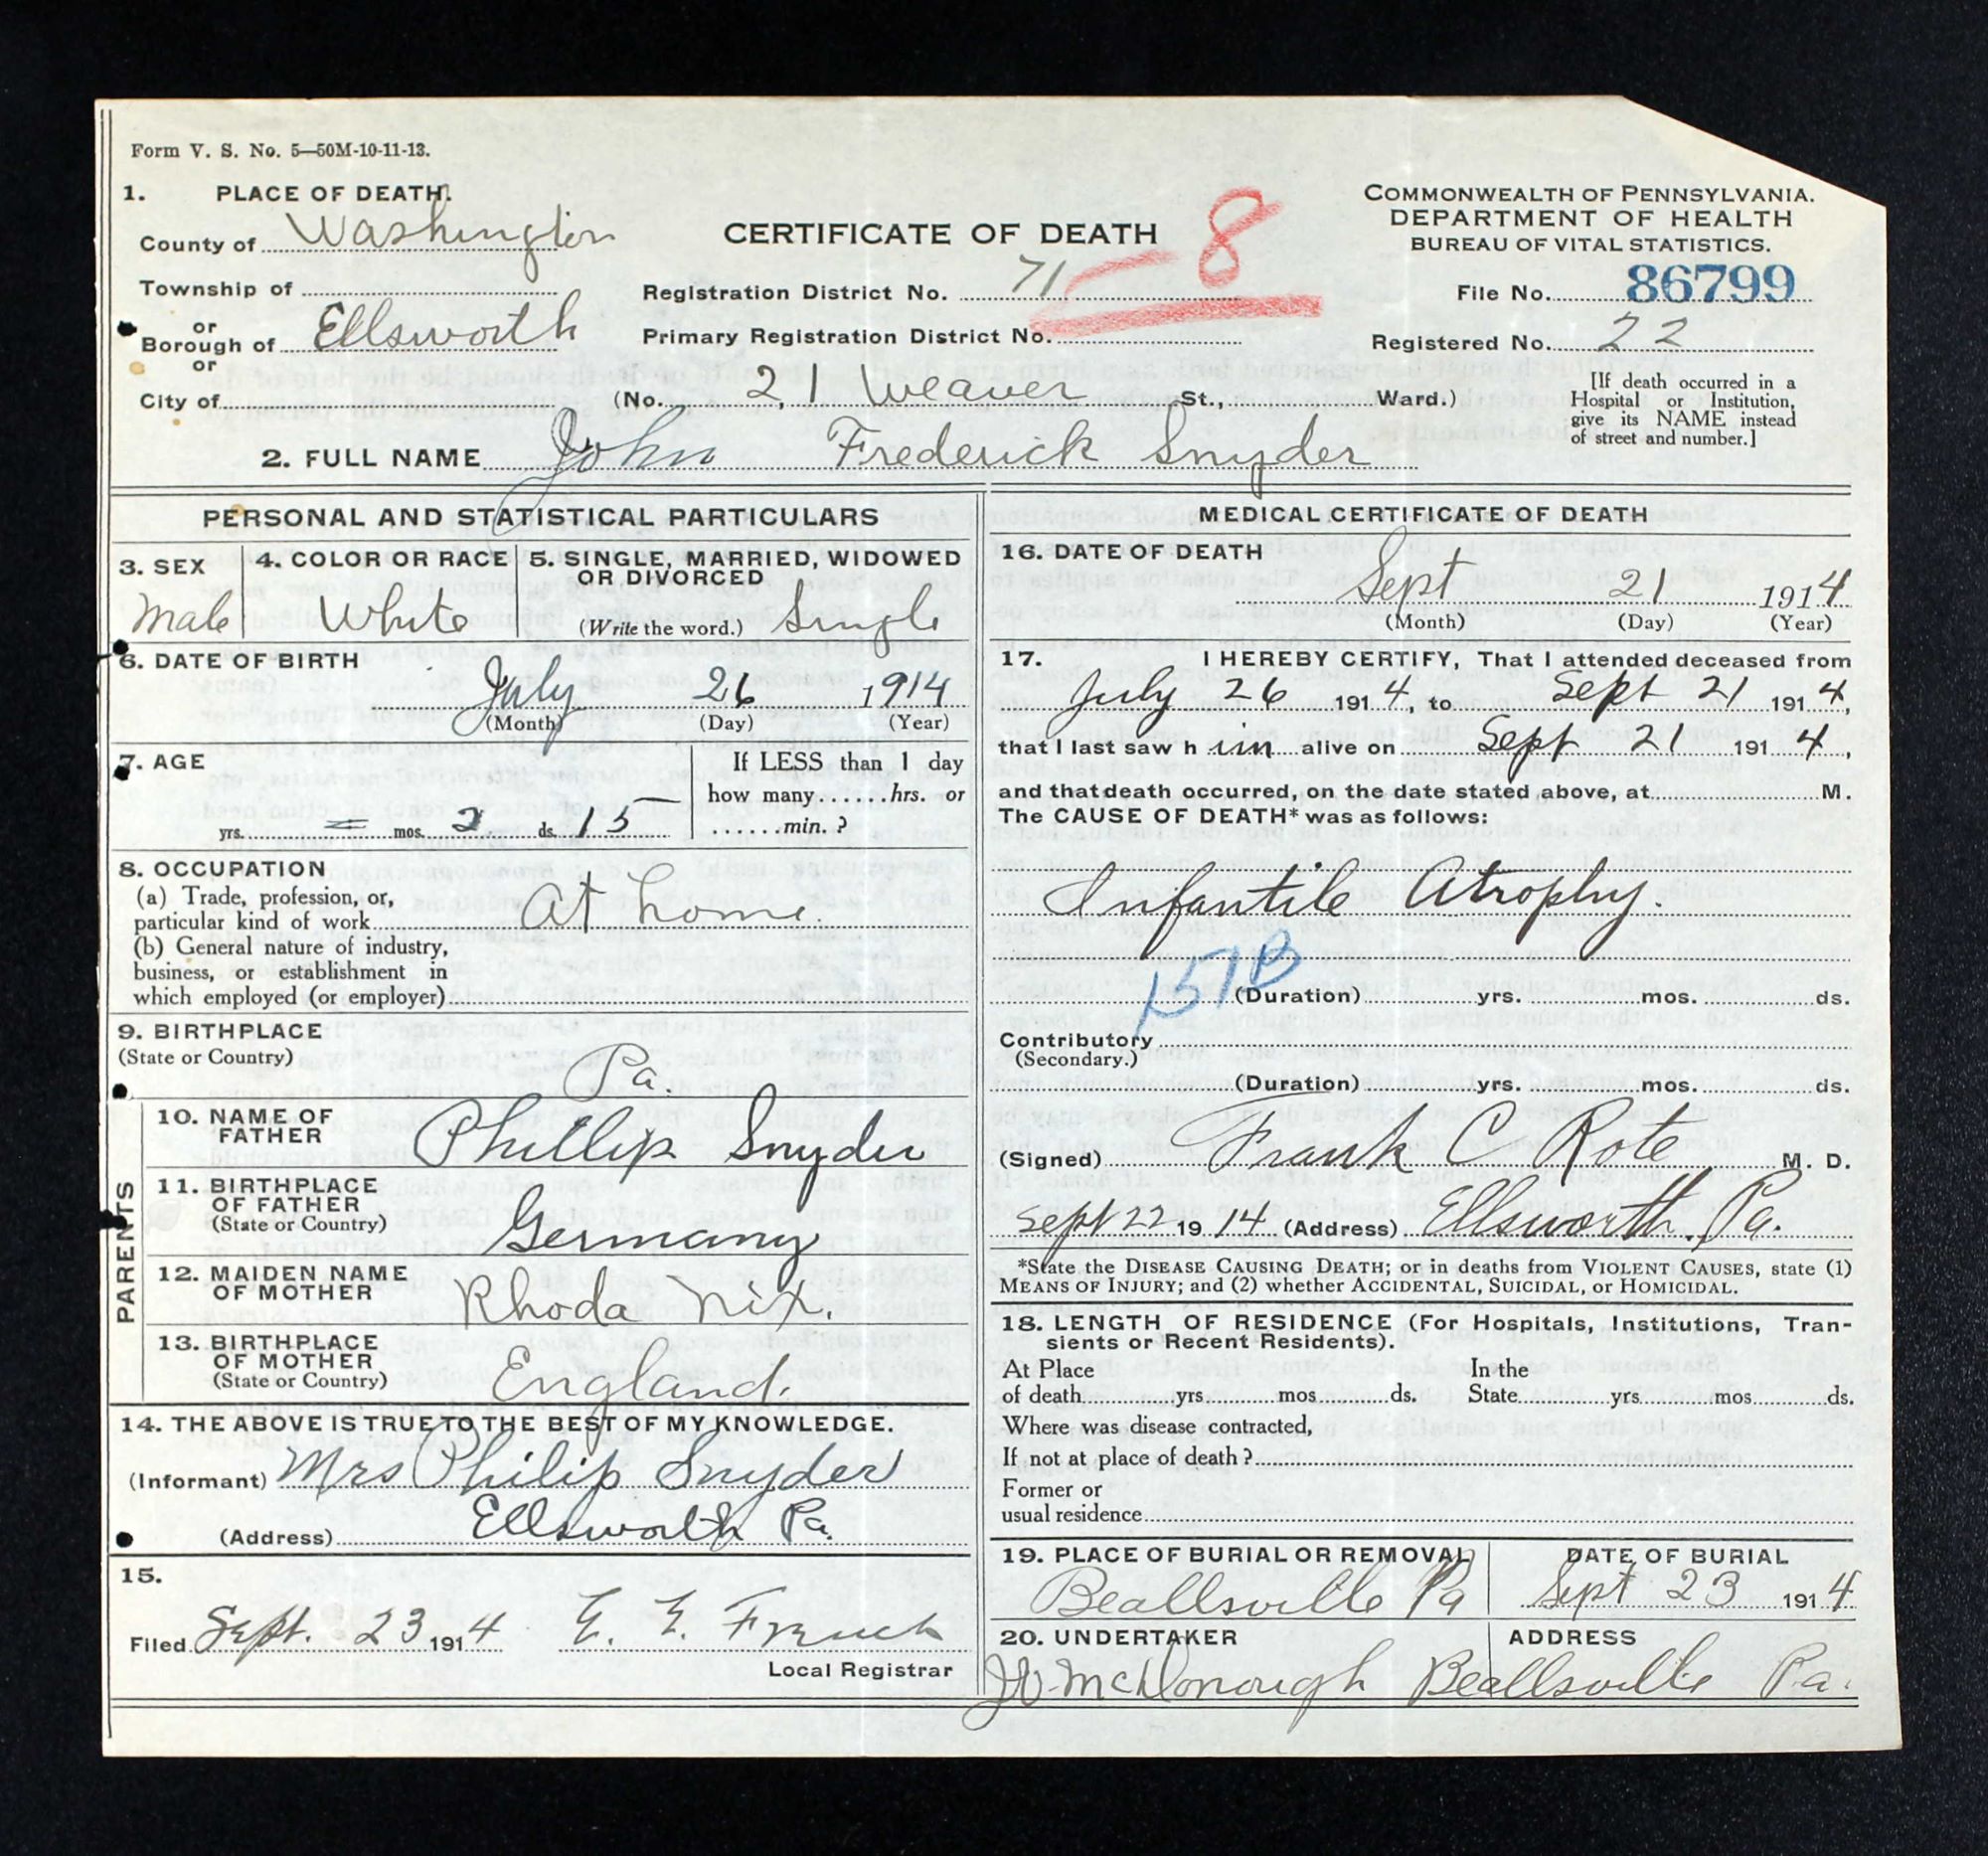 Form V. S. No. 5—50M-10-11-13.
1. PLACE OF DEATH.
County of Washington
Township of
or
Borough of Ellsworth
or
City of
CERTIFICATE OF DEATH
Registration District No. 71 8
Primary Registration District No.
(No. 21 Weaver St., Ward.)
COMMONWEALTH OF PENNSYLVANIA.
DEPARTMENT OF HEALTH
BUREAU OF VITAL STATISTICS.
File No. 86799
Registered No. 22
[If death occurred in a
Hospital or Institution,
give its NAME instead
of street and number.]
2. FULL NAME John Frederick Snyder
PERSONAL AND STATISTICAL PARTICULARS
3. SEX
Male
4. COLOR OR RACE
White
5. SINGLE, MARRIED, WIDOWED
OR DIVORCED
(Write the word.) Single
6. DATE OF BIRTH
July 26 1914
(Month) (Day) (Year)
7. AGE
yrs. mos. 2 ds. 15
If LESS than 1 day
how many ...... hrs. or
...... min. ?
8. OCCUPATION
(a) Trade, profession, or,
particular kind of work At home
(b) General nature of industry,
business, or establishment in
which employed (or employer)
9. BIRTHPLACE
(State or Country)
Pa.
PARENTS
10. NAME OF
FATHER
Phillip Snyder
11. BIRTHPLACE
OF FATHER
(State or Country)
Germany
12. MAIDEN NAME
OF MOTHER
Rhoda Nix.
13. BIRTHPLACE
OF MOTHER
(State or Country)
England.
14. THE ABOVE IS TRUE TO THE BEST OF MY KNOWLEDGE.
(Informant) Mrs Philip Snyder
(Address) Ellsworth Pa.
15.
Filed Sept. 23 1914 E. E. French
Local Registrar
MEDICAL CERTIFICATE OF DEATH
16. DATE OF DEATH
Sept 21 1914
(Month) (Day) (Year)
17. I HEREBY CERTIFY, That I attended deceased from
July 26 1914, to Sept 21 1914,
that I last saw h im alive on Sept 21 1914,
and that death occurred, on the date stated above, at M.
The CAUSE OF DEATH* was as follows:
Infantile Atrophy.
151B
(Duration) yrs. mos. ds.
Contributory
(Secondary.)
(Duration) yrs. mos. ds.
(Signed) Frank C Rote M. D.
Sept 22 1914 (Address) Ellsworth. Pa.
*State the DISEASE CAUSING DEATH; or in deaths from VIOLENT CAUSES, state (1)
MEANS OF INJURY; and (2) whether ACCIDENTAL, SUICIDAL, or HOMICIDAL.
18. LENGTH OF RESIDENCE (For Hospitals, Institutions, Tran-
sients or Recent Residents).
At Place In the
of death yrs mos ds. State yrs mos ds.
Where was disease contracted,
If not at place of death ?
Former or
usual residence
19. PLACE OF BURIAL OR REMOVAL
Beallsville Pa
DATE OF BURIAL
Sept 23 1914
20. UNDERTAKER
McDonough
ADDRESS
Beallsville Pa.